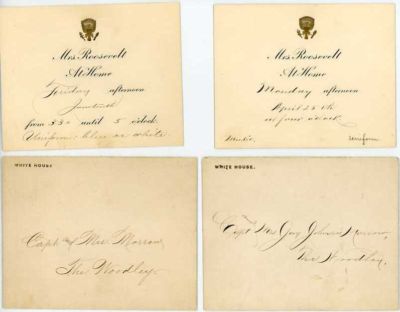 Mrs. Roosevelt
At Home
Tuesday afternoon
from 3.30 until 5 o'clock.
Uniform: blue or white.
Mrs. Roosevelt
At Home
Monday afternoon
April 25th
at four o'clock.
Music. Uniform
WHITE HOUSE
Capt. & Mrs. Morrow
The Woodley.
WHITE HOUSE.
Capt. Mrs Jay Johnson Morrow,
The Woodley.